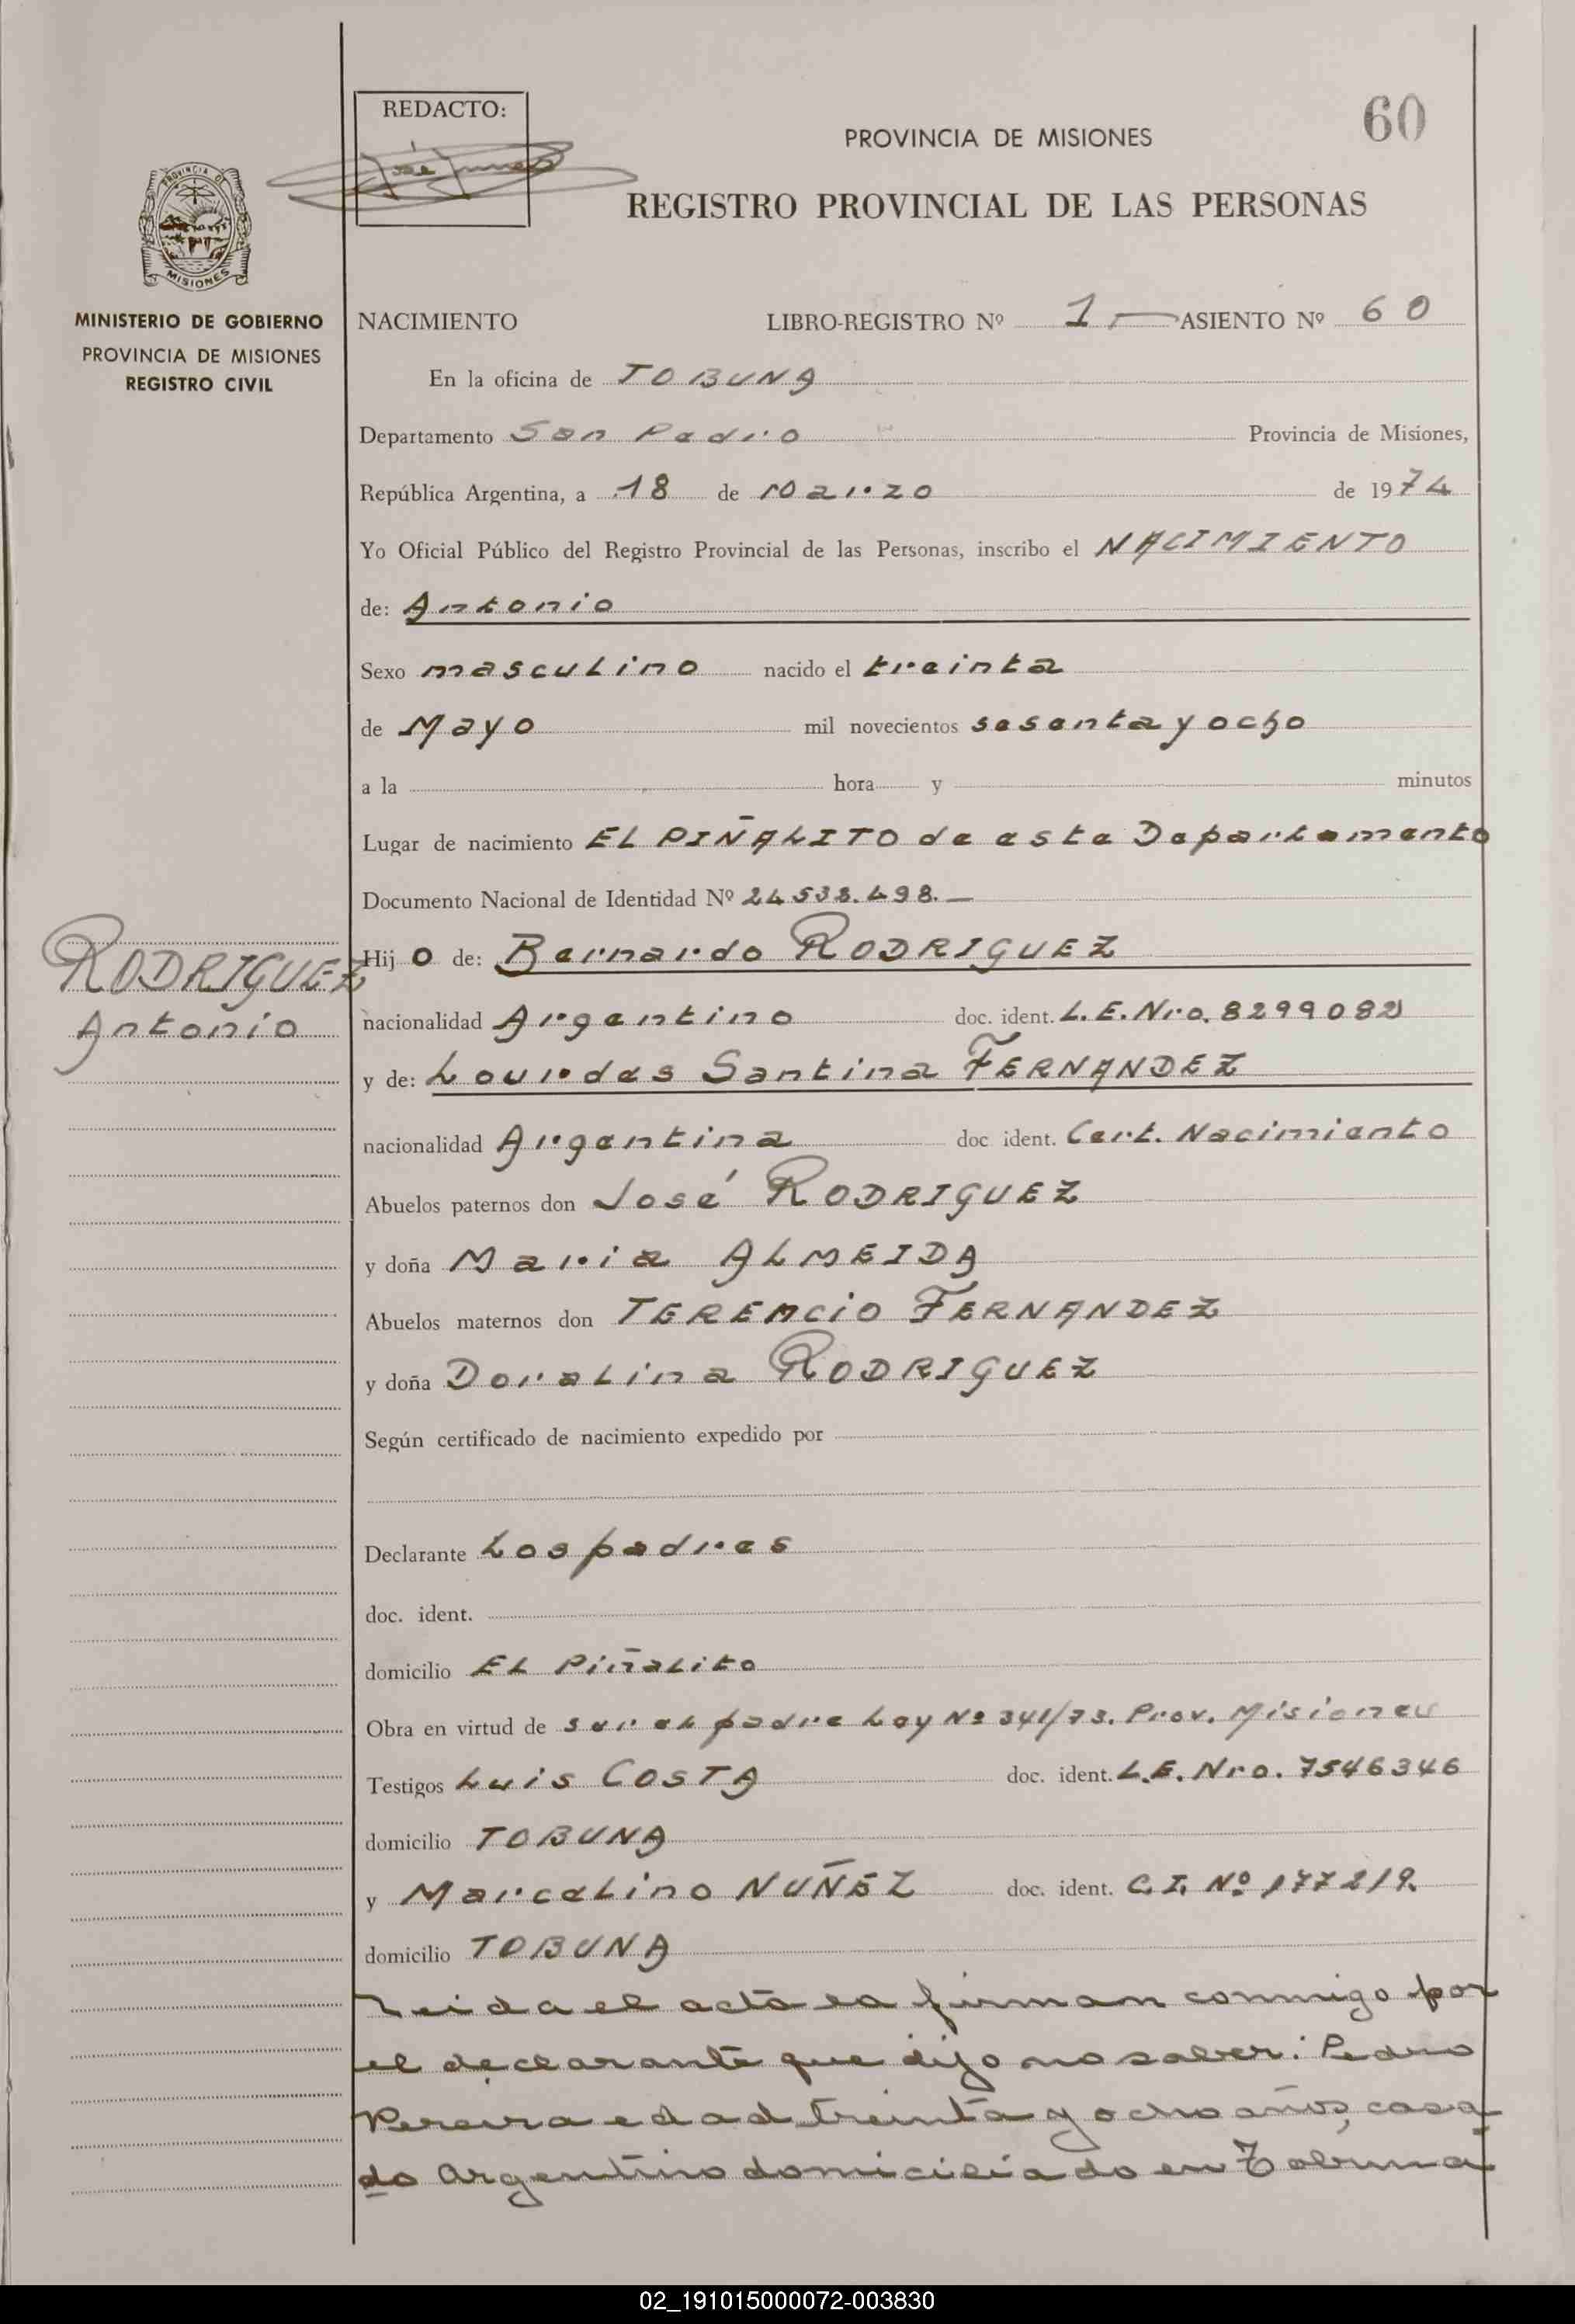 REDACTO:
60
PROVINCIA DE MISIONES
REGISTRO PROVINCIAL DE LAS PERSONAS
PROVINCIA DE
MISIONES
MINISTERIO DE GOBIERNO
PROVINCIA DE MISIONES
REGISTRO CIVIL
NACIMIENTO LIBRO-REGISTRO Nº 1 — ASIENTO Nº 60
En la oficina de TOBUNA
Departamento San Pedro Provincia de Misiones,
República Argentina, a 18 de Marzo de 1974
Yo Oficial Público del Registro Provincial de las Personas, inscribo el NACIMIENTO
de: Antonio
Sexo masculino nacido el treinta
de Mayo mil novecientos sesenta y ocho
a la hora y minutos
Lugar de nacimiento EL PIÑALITO de este Departamento
Documento Nacional de Identidad Nº 24538.498.—
Hijo de: Bernardo RODRIGUEZ
RODRIGUEZ
Antonio
nacionalidad Argentino doc. ident. L.E.Nro. 8299082
y de: Lourdes Santina FERNANDEZ
nacionalidad Argentina doc ident. Cert. Nacimiento
Abuelos paternos don José RODRIGUEZ
y doña Maria ALMEIDA
Abuelos maternos don TERENCIO FERNANDEZ
y doña Doralina RODRIGUEZ
Según certificado de nacimiento expedido por
Declarante Los padres
doc. ident.
domicilio EL Piñalito
Obra en virtud de ser el padre Ley Nº 341/73. Prov. Misiones
Testigos Luis COSTA doc. ident. L.E. Nro. 7546346
domicilio TOBUNA
y Marcelino NUÑEZ doc. ident. C.I. Nº 177219.
domicilio TOBUNA
Leida el acta la firman conmigo por
el declarante que dijo no saber: Pedro
Pereira edad treinta y ocho años, casa
do Argentino domiciliado en Tobuna
02_191015000072-003830